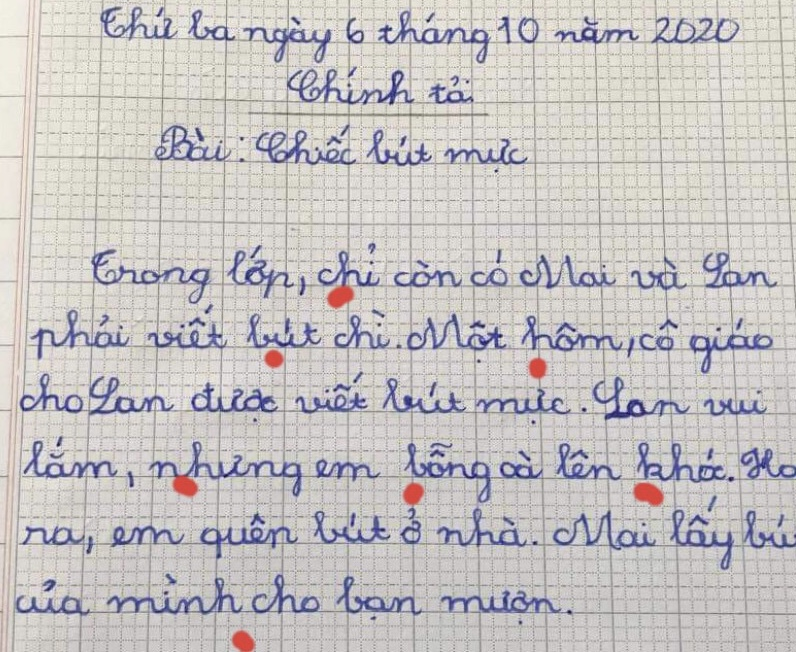 Thứ ba ngày 6 tháng 10 năm 2020
Chính tả
Bài: Chiếc bút mực
Trong lớp, chỉ còn có Mai và Lan
phải viết bút chì. Một hôm, cô giáo
cho Lan được viết bút mực. Lan vui
lắm, nhưng em bỗng oà lên khóc. Ho
ra, em quên bút ở nhà. Mai lấy bú
của mình cho bạn mượn.